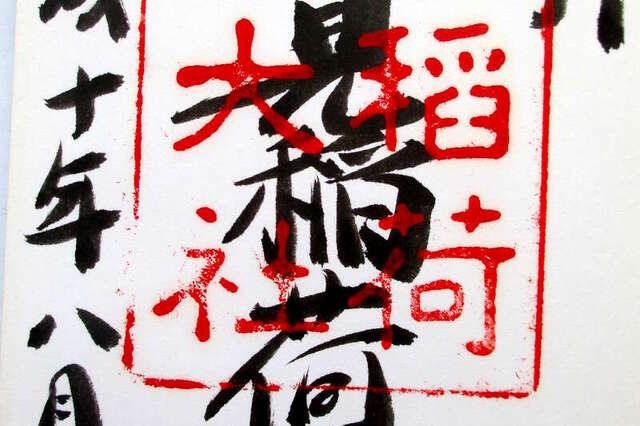 見稲荷
稲荷
大社
成十年八月